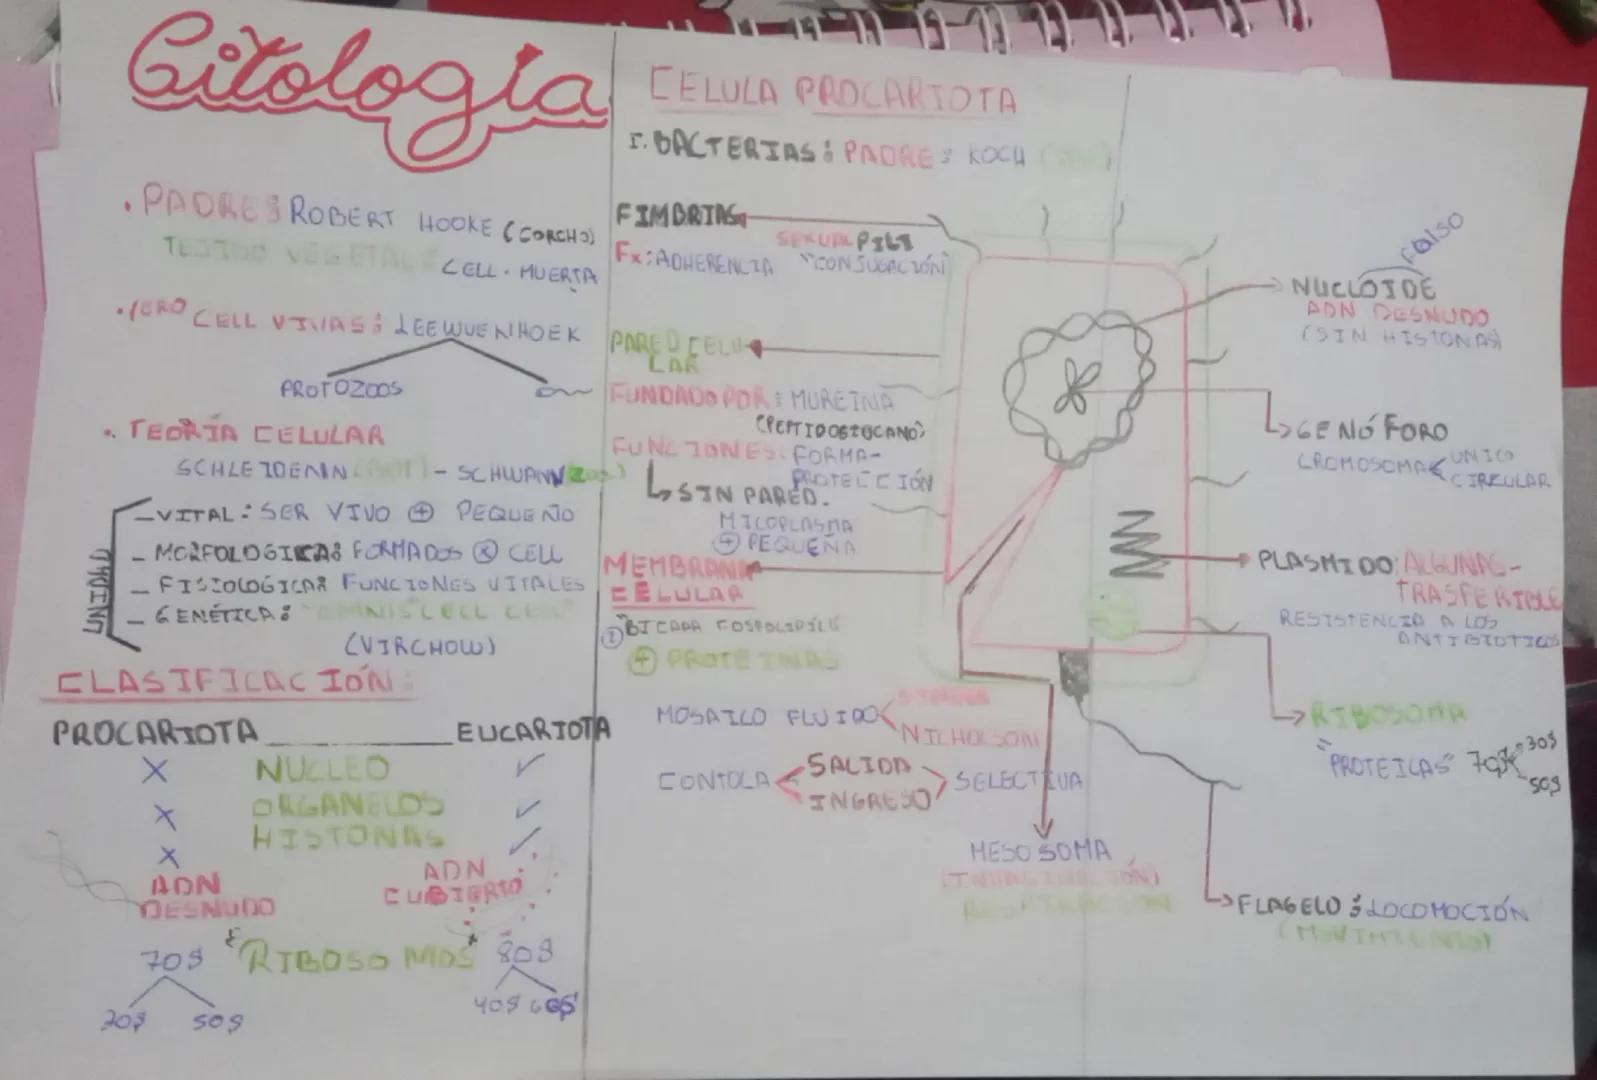 Citología
. PADRE: ROBERT HOOKE (CORCHO)
TEJIDO VEGETAL: CELL. MUERTA
. 1ERO CELL VIVAS: LEEWUENHOEK
PROTOZOOS
. TEORÍA CELULAR
SCHLEIDENN (BOT) - SCHWANN (ZOO)
UNIDAD
- VITAL: SER VIVO + PEQUEÑO
- MORFOLOGICA: FORMADOS X CELL
- FISIOLOGICA: FUNCIONES VITALES
- GENÉTICA: "OMNIS CELL CELL"
(VIRCHOW)
CLASIFICACIÓN:
PROCARIOTA EUCARIOTA
X NUCLEO ✓
X ORGANELOS ✓
X HISTONAS ✓
ADN DESNUDO
ADN CUBIERTO
70S "RIBOSOMAS" 80S
30S 50S 40S 60S
CELULA PROCARIOTA
I. BACTERIAS: PADRE: KOCH
FIMBRIAS
Fx: ADHERENCIA
SEXUAL PILI
"CONJUGACIÓN"
PARED CELU-
LAR
FUNDADO POR: MUREINA
(PEPTIDOGLUCANO)
FUNCIONES: FORMA-
PROTECCIÓN
SIN PARED.
MICOPLASMA
+ PEQUEÑA
MEMBRANA
CELULAR
BICAPA FOSFOLIPÍLI
+ PROTEINAS
MOSAICO FLUIDO
SINGER
NICHOLSON
CONTOLA
SALIDA
INGRESO
SELECTIVA
MESOSOMA
(INVAGINACIÓN)
RESPIRACIÓN
Falso
NUCLOIDE
ADN DESNUDO
(SIN HISTONAS)
GENÓFORO
CROMOSOMA
UNICO
CIRCULAR
PLASMIDO: ALGUNAS-
TRASFERIBLE
RESISTENCIA A LOS
ANTIBIOTICOS
RIBOSOMA
"PROTEICAS" 70S
30S
50S
FLAGELO: LOCOMOCIÓN
(MOVIMIENTO)